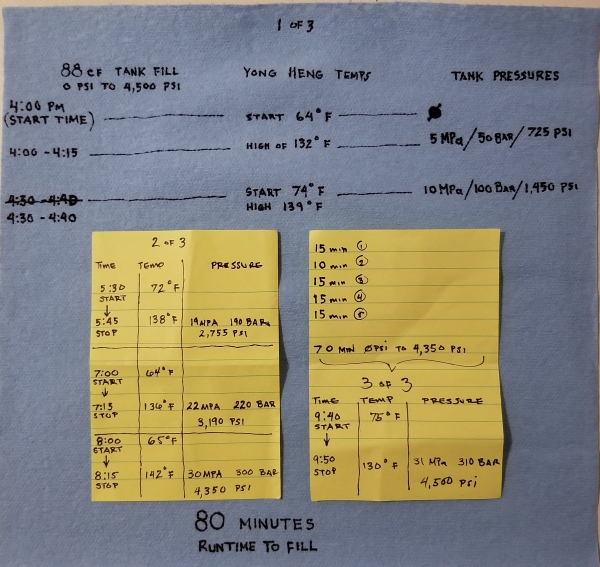 1 OF 3
88 CF TANK FILL YONG HENG TEMPS TANK PRESSURES
0 PSI TO 4,500 PSI
4:00 PM
(START TIME) START 64° F Ø
4:00 - 4:15 HIGH OF 132° F 5 MPa/50 BAR/725 PSI
4:30 - 4:40 START 74° F 10 MPa/100 BAR/1,450 PSI
4:30 - 4:40 HIGH 139° F
2 OF 3
TIME TEMP PRESSURE
5:30 72° F
START
↓
5:45 138° F 19MPA 190 BAR
STOP 2,755 PSI
7:00 64° F
START
↓
7:15 136° F 22MPA 220 BAR
STOP 3,190 PSI
8:00 65° F
START
↓
8:15 142° F 30MPA 300 BAR
STOP 4,350 PSI
15 min ①
10 min ②
15 min ③
15 min ④
15 min ⑤
70 MIN ØPSI TO 4,350 PSI
3 OF 3
TIME TEMP PRESSURE
9:40 75° F
START
↓
9:50 130° F 31 MPa 310 BAR
STOP 4,500 PSI
80 MINUTES
RUNTIME TO FILL